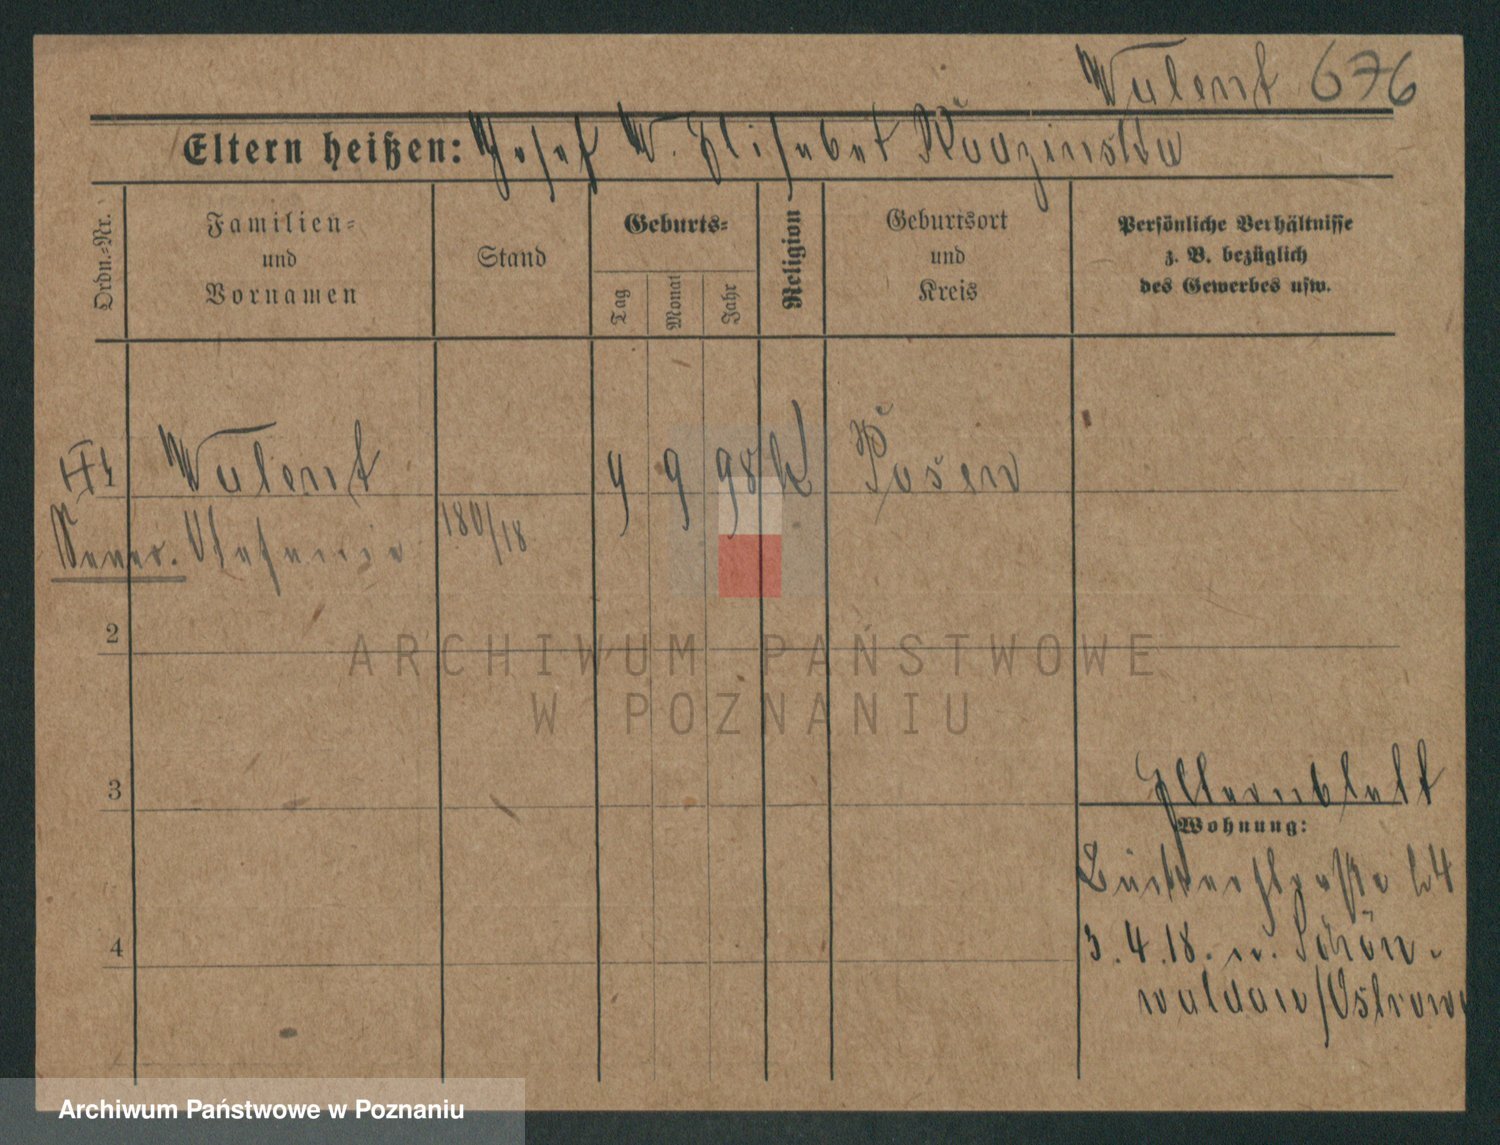 Walent 676
Eltern heißen: Josef W. Elisabet
Ordn.=Nr.
Familien=
und
Vornamen
Stand
Geburts=
Tag
Monat
Jahr
Religion
Geburtsort
und
Kreis
Persönliche Verhältnisse
z. B. bezüglich
des Gewerbes usw.
1 Walent 4 9 98 k Posen
Stefanie 180/18
2
ARCHIWUM PAŃSTWOWE
W POZNANIU
3
Elternblatt
Wohnung:
4
3.4.18. n. Schön-
waldau/Ostrowo
Archiwum Państwowe w Poznaniu